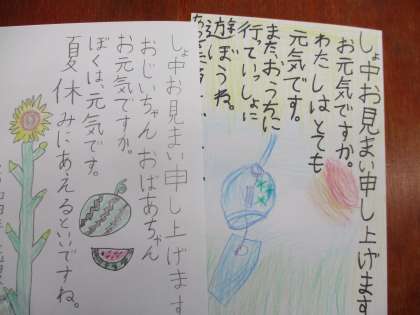 しょ中お見まい申し上げます
お元気ですか。
わたしはとても
元気です。
また、おうちに
行っていっしょに
遊ぼうね。
しょ中お見まい申し上げます
おじいちゃん おばあちゃん
お元気ですか。
ぼくは、元気です。
夏休みにあえるといいですね。